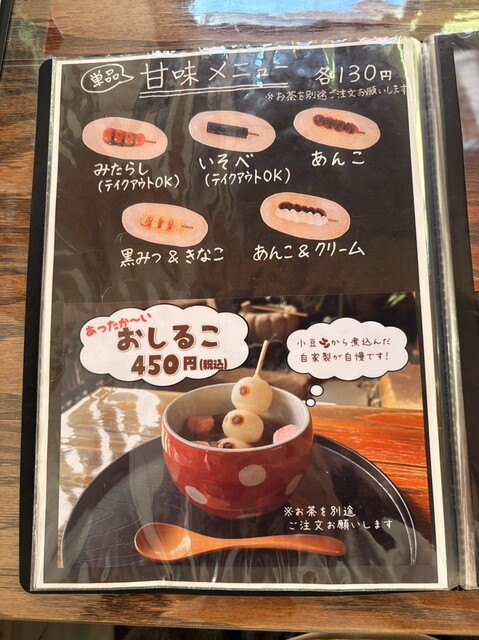 単品 甘味メニュー 各130円
※お茶を別途ご注文お願いします
みたらし
(テイクアウトOK)
いそべ
(テイクアウトOK)
あんこ
黒みつ&きなこ
あんこ&クリーム
あったか〜い
おしるこ
450円(税込)
小豆から煮込んだ
自家製が自慢です!
※お茶を別途
ご注文お願いします